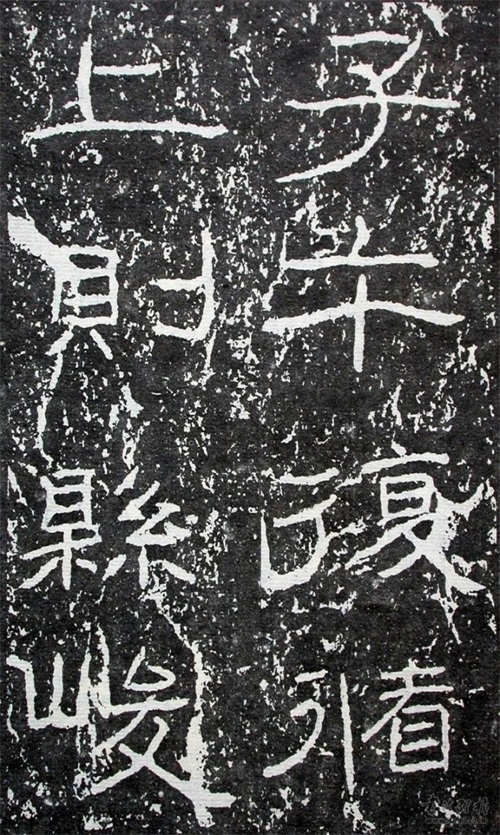 子午復循
上則縣峻